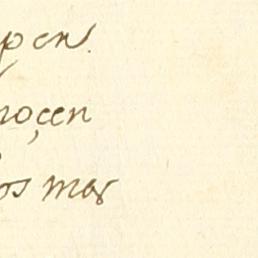 pen.
noçen
os mas